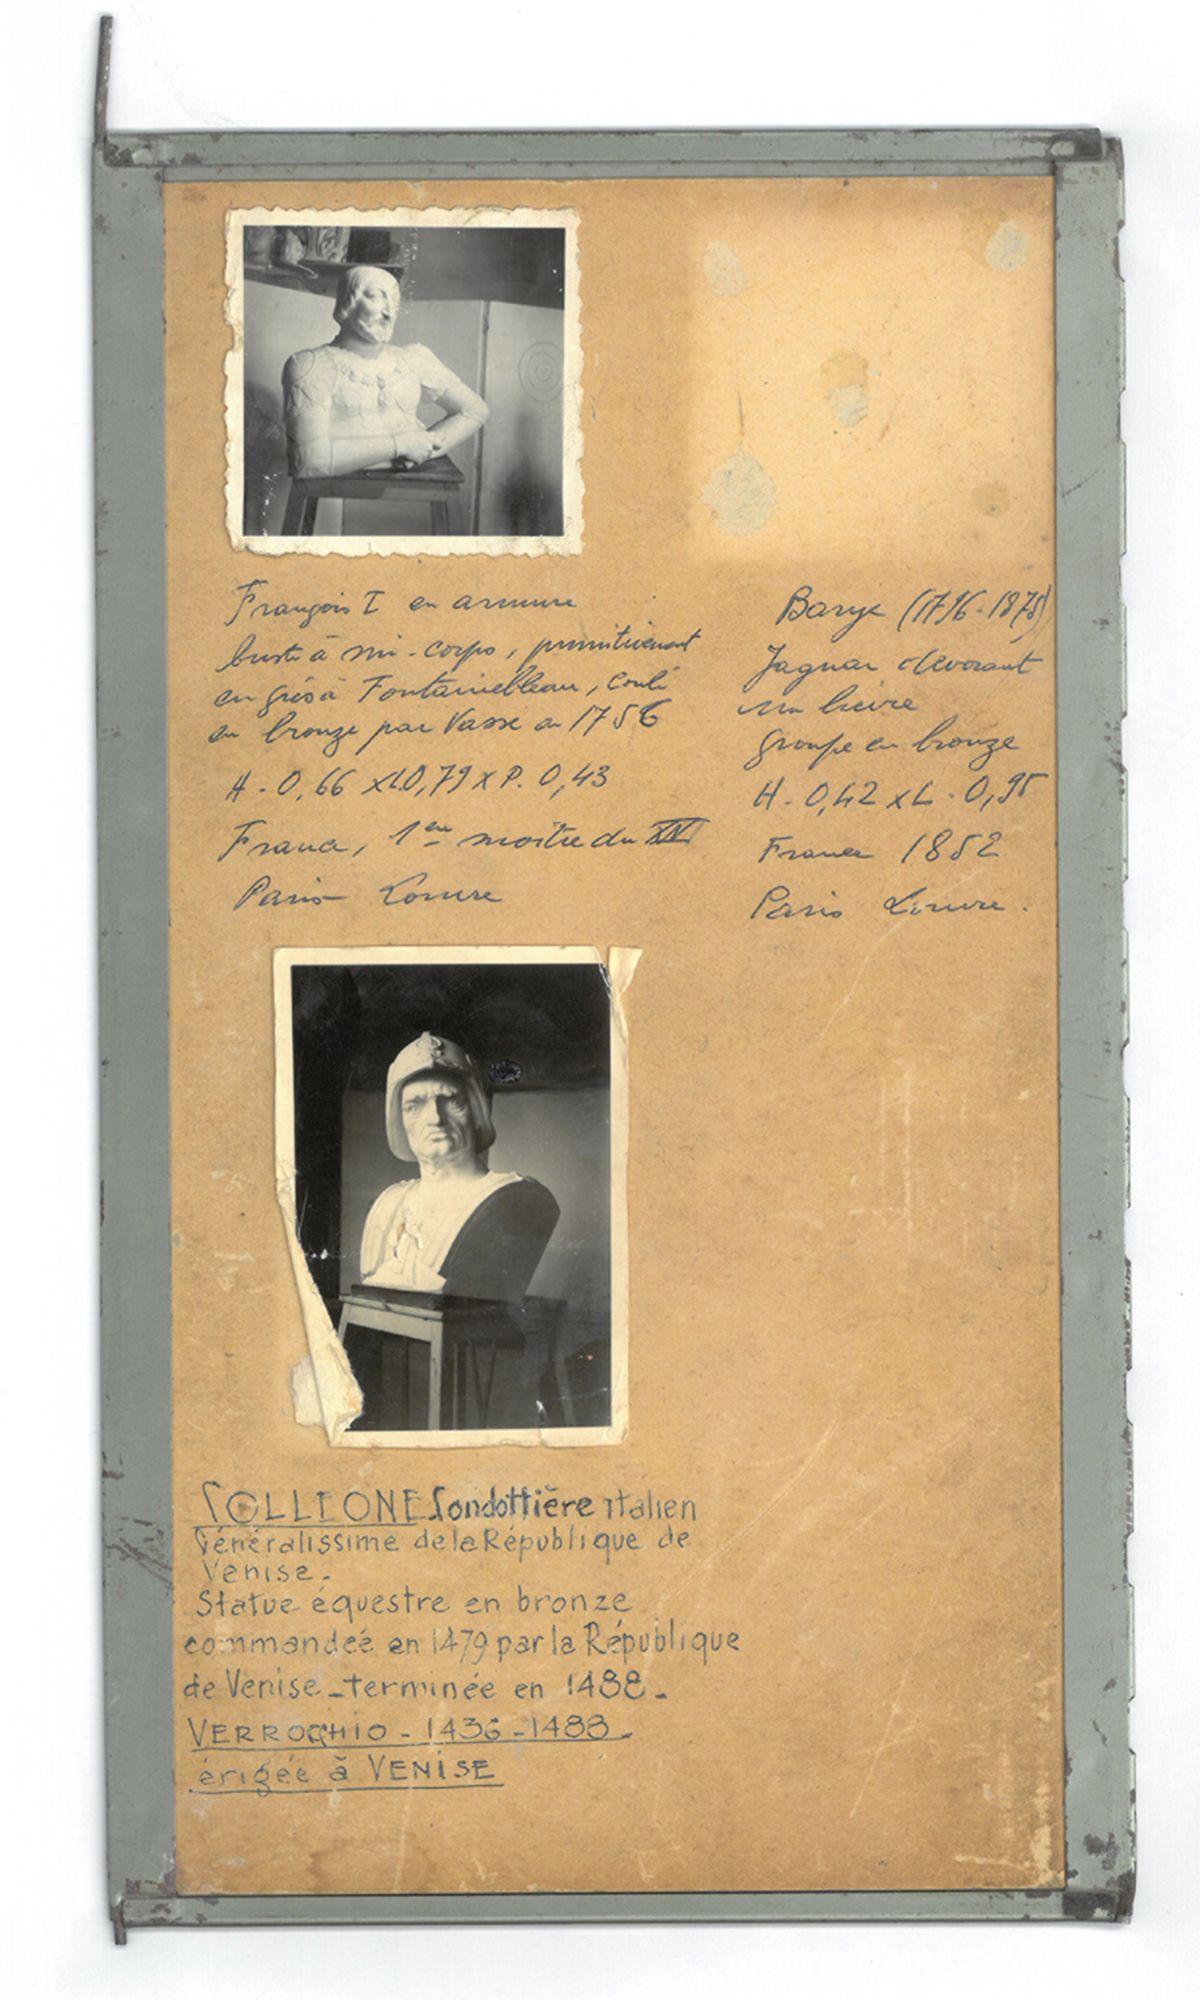 François I en armure
buste à mi-corps, primitivement
en grès à Fontainebleau, coulé
en bronze par Vassé en 1756
H - 0,66 x L 0,79 x P. 0,43
France, 1ere moitie du XVI
Paris Louvre
Barye (1796-1875)
Jaguar devorant
un lievre
groupe en bronze
H - 0,42 x L - 0,95
France 1852
Paris Louvre.
COLLEONE Condottière italien
Généralissime de la République de
Venise.
Statue équestre en bronze
commandeé en 1479 par la République
de Venise - terminée en 1488 -
VERROCHIO - 1436 - 1488 -
érigée à VENISE